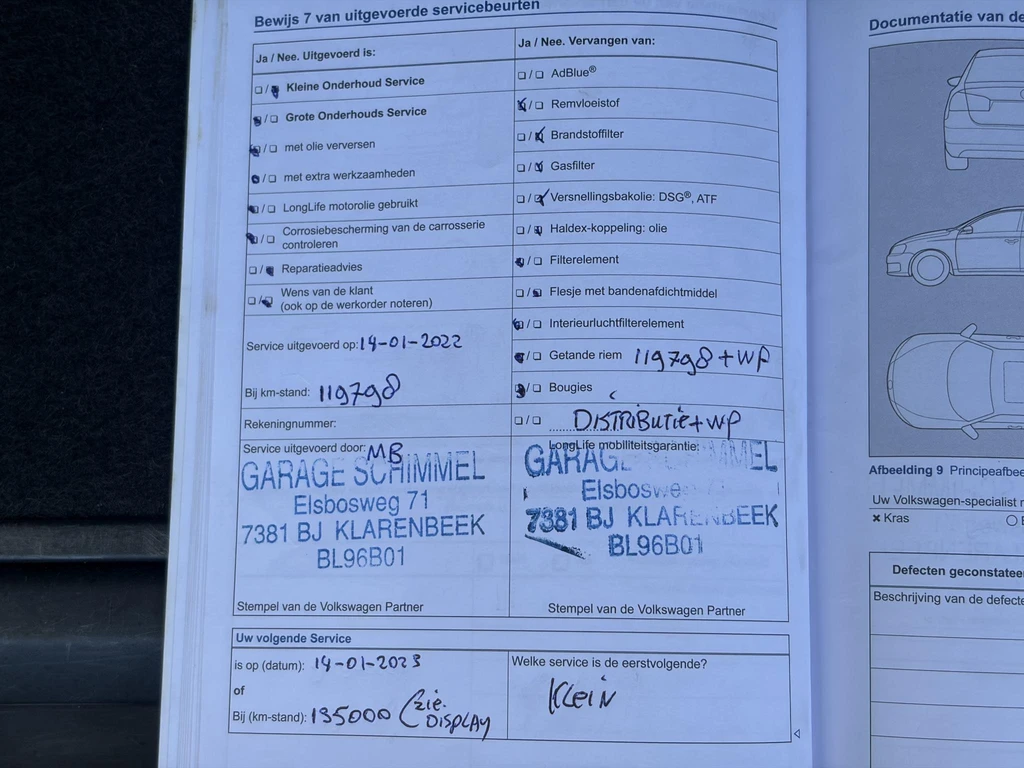 Bewijs 7 van uitgevoerde servicebeurten
Ja / Nee. Uitgevoerd is:
Kleine Onderhoud Service
Grote Onderhouds Service
met olie verversen
met extra werkzaamheden
LongLife motorolie gebruikt
Corrosiebescherming van de carrosserie
controleren
Reparatieadvies
Wens van de klant
(ook op de werkorder noteren)
Service uitgevoerd op: 14-01-2022
Bij km-stand: 119798
Rekeningnummer:
Service uitgevoerd door: MB
GARAGE SCHIMMEL
Elsbosweg 71
7381 BJ KLARENBEEK
BL96B01
Stempel van de Volkswagen Partner
Ja / Nee. Vervangen van:
AdBlue®
Remvloeistof
Brandstoffilter
Gasfilter
Versnellingsbakolie: DSG®, ATF
Haldex-koppeling: olie
Filterelement
Flesje met bandenafdichtmiddel
Interieurluchtfilterelement
Getande riem 119798 + WP
Bougies
DISTRIBUTIE + WP
LongLife mobiliteitsgarantie:
GARAG MMEL
Elsboswe
7381 BJ KLARENBEEK
BL96B01
Stempel van de Volkswagen Partner
Uw volgende Service
is op (datum): 14-01-2023
of
Bij (km-stand): 135000 (zie
DISPLAY
Welke service is de eerstvolgende?
Klein
Documentatie van de
Afbeelding 9 Principeafbee
Uw Volkswagen-specialist
× Kras
Defecten geconstatee
Beschrijving van de defecte